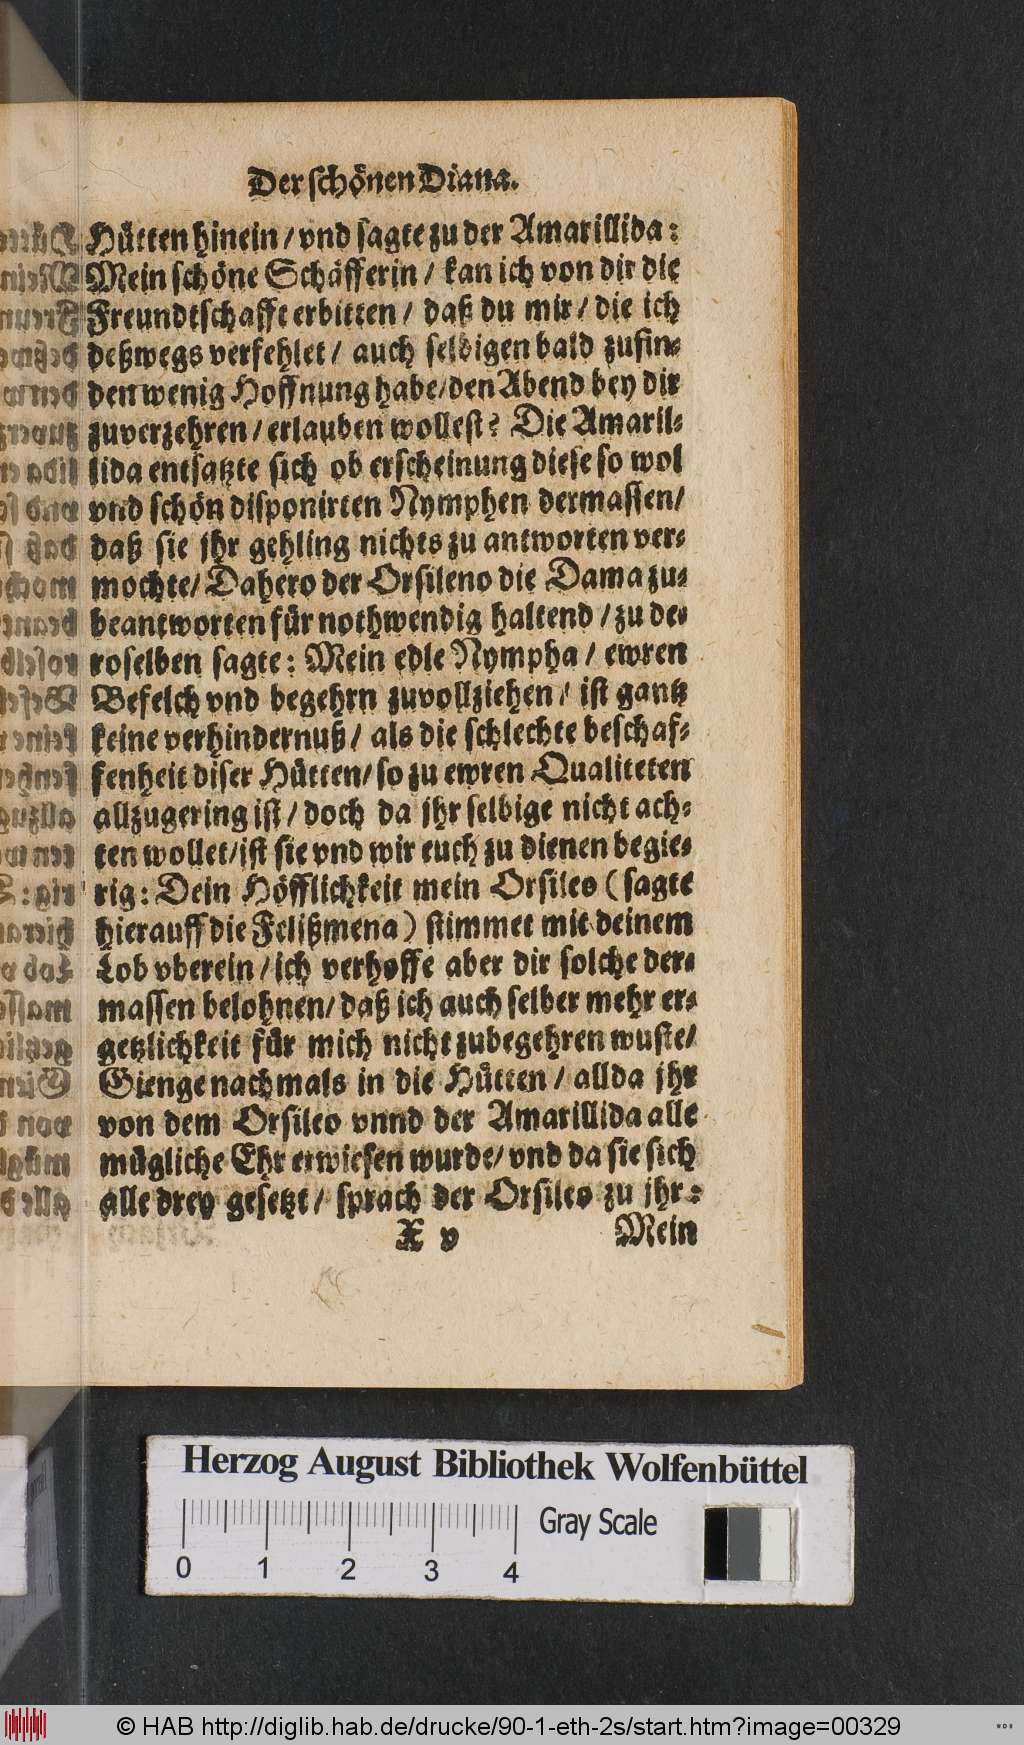 Der schönen Diana.
Hütten hinein / vnd sagte zu der Amarillida:
Mein schöne Schäfferin / kan ich von dir die
Freundtschafft erbitten / daß du mir / die ich
deßwegs verfehlet / auch selbigen bald zufin-
den wenig Hoffnung habe / den Abend bey dir
zuverzehren / erlauben wollest? Die Amaril-
lida entsatzte sich ob erscheinung diese so wol
vnd schön disponirten Nymphen dermassen /
daß sie jhr gehling nichts zu antworten ver-
mochte / Dahero der Orsileno die Dama zu-
beantworten für nothwendig haltend / zu de-
roselben sagte: Mein edle Nympha / ewren
Befelch vnd begehrn zuvollziehen / ist gantz
keine verhindernuß / als die schlechte beschaf-
fenheit diser Hütten / so zu ewren Qualiteten
allzugering ist / doch da jhr selbige nicht ach-
ten wollet / ist sie vnd wir euch zu dienen begie-
rig: Dein Höfflichkeit mein Orsileo (sagte
hierauff die Felißmena) stimmet mit deinem
Lob vberein / ich verhoffe aber dir solche der-
massen belohnen / daß ich auch selber mehr er-
getzlichkeit für mich nicht zubegehren wuste /
Gienge nachmals in die Hütten / allda jhr
von dem Orsileo vnnd der Amarillida alle
mügliche Ehr erwiesen wurde / vnd da sie sich
alle drey gesetzt / sprach der Orsileo zu jhr:
X v Mein
Herzog August Bibliothek Wolfenbüttel
Gray Scale
0 1 2 3 4
© HAB http://diglib.hab.de/drucke/90-1-eth-2s/start.htm?image=00329